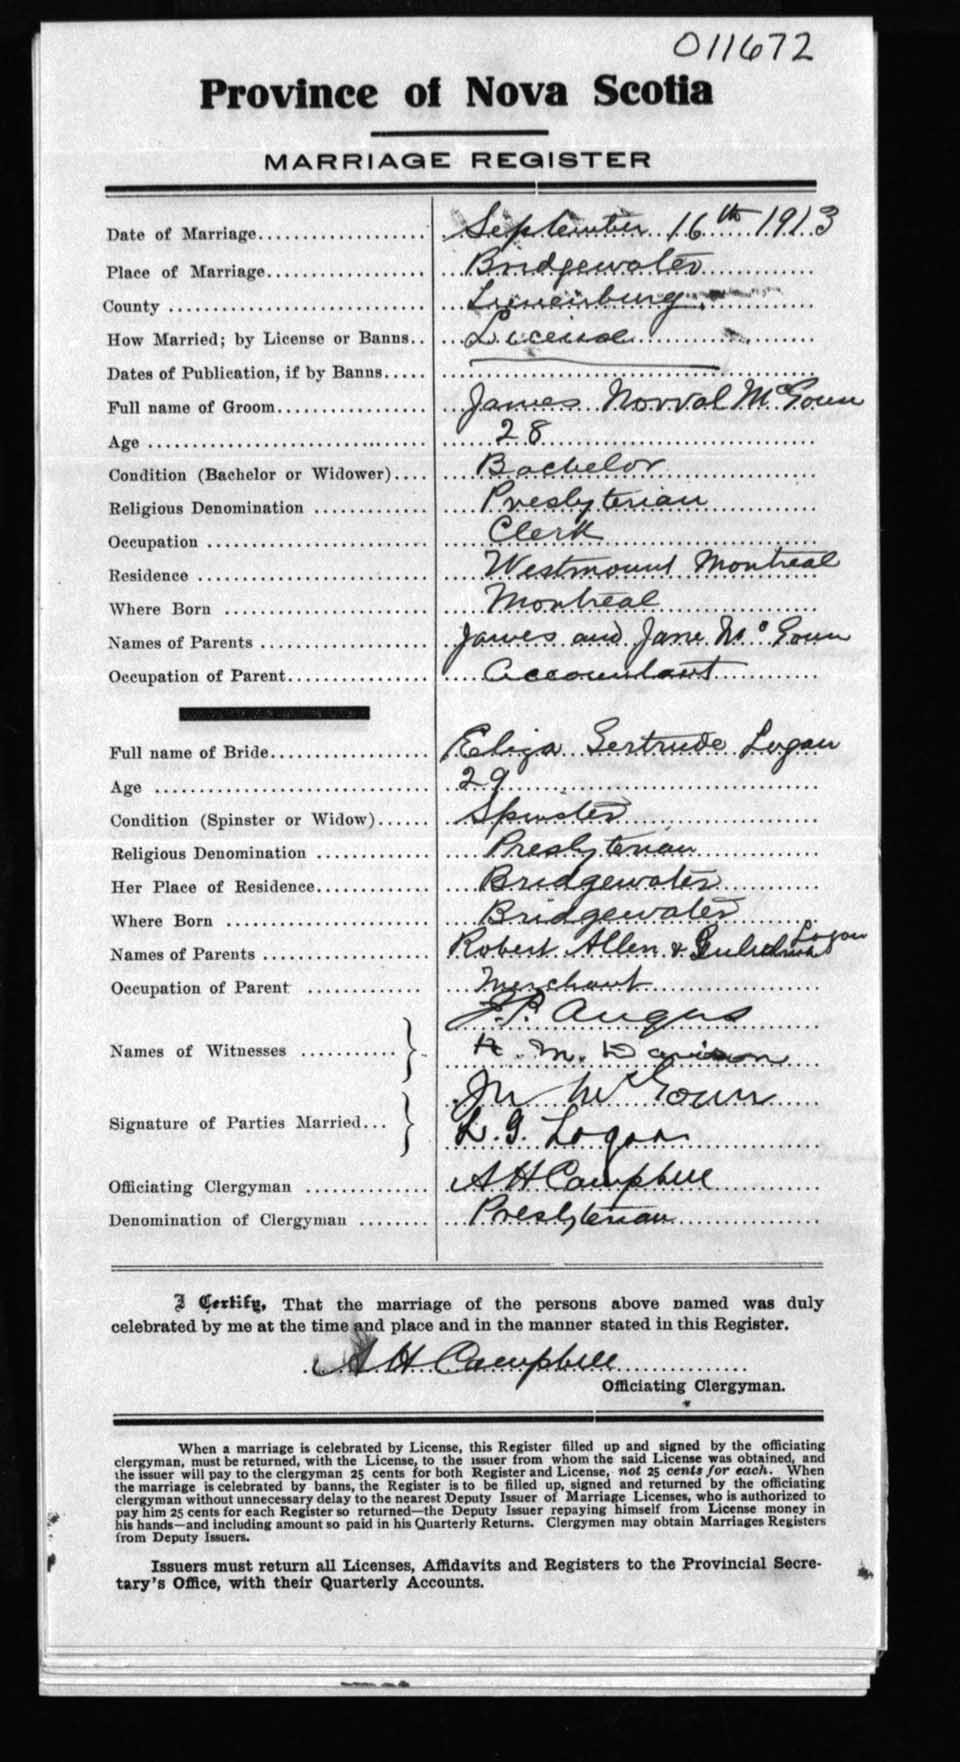 011672
Province of Nova Scotia
MARRIAGE REGISTER
Date of Marriage.................... September 16th 1913
Place of Marriage................... Bridgewater
County ................................ Lunenburg
How Married; by License or Banns.. License
Dates of Publication, if by Banns.....
Full name of Groom.................. James Norval McGoun
Age .................................... 28
Condition (Bachelor or Widower).... Bachelor
Religious Denomination .............. Presbyterian
Occupation ............................ Clerk
Residence ............................. Westmount Montreal
Where Born ........................... Montreal
Names of Parents ..................... James and Jane McGoun
Occupation of Parent................. Accountant
Full name of Bride................... Eliza Gertrude Logan
Age .................................... 29
Condition (Spinster or Widow)...... Spinster
Religious Denomination .............. Presbyterian
Her Place of Residence.............. Bridgewater
Where Born ........................... Bridgewater
Names of Parents ..................... Robert Allen & Logan
Occupation of Parent ................ Merchant
J.P. Angus
Names of Witnesses ...........
H. M. Davison
J N McGoun
Signature of Parties Married...
L. G. Logan
Officiating Clergyman ............... A H Campbell
Denomination of Clergyman ........ Presbyterian
I Certify, That the marriage of the persons above named was duly
celebrated by me at the time and place and in the manner stated in this Register.
A H Campbell
Officiating Clergyman.
When a marriage is celebrated by License, this Register filled up and signed by the officiating
clergyman, must be returned, with the License, to the issuer from whom the said License was obtained, and
the issuer will pay to the clergyman 25 cents for both Register and License, not 25 cents for each. When
the marriage is celebrated by banns, the Register is to be filled up, signed and returned by the officiating
clergyman without unnecessary delay to the nearest Deputy Issuer of Marriage Licenses, who is authorized to
pay him 25 cents for each Register so returned—the Deputy Issuer repaying himself from License money in
his hands—and including amount so paid in his Quarterly Returns. Clergymen may obtain Marriages Registers
from Deputy Issuers.
Issuers must return all Licenses, Affidavits and Registers to the Provincial Secre-
tary's Office, with their Quarterly Accounts.